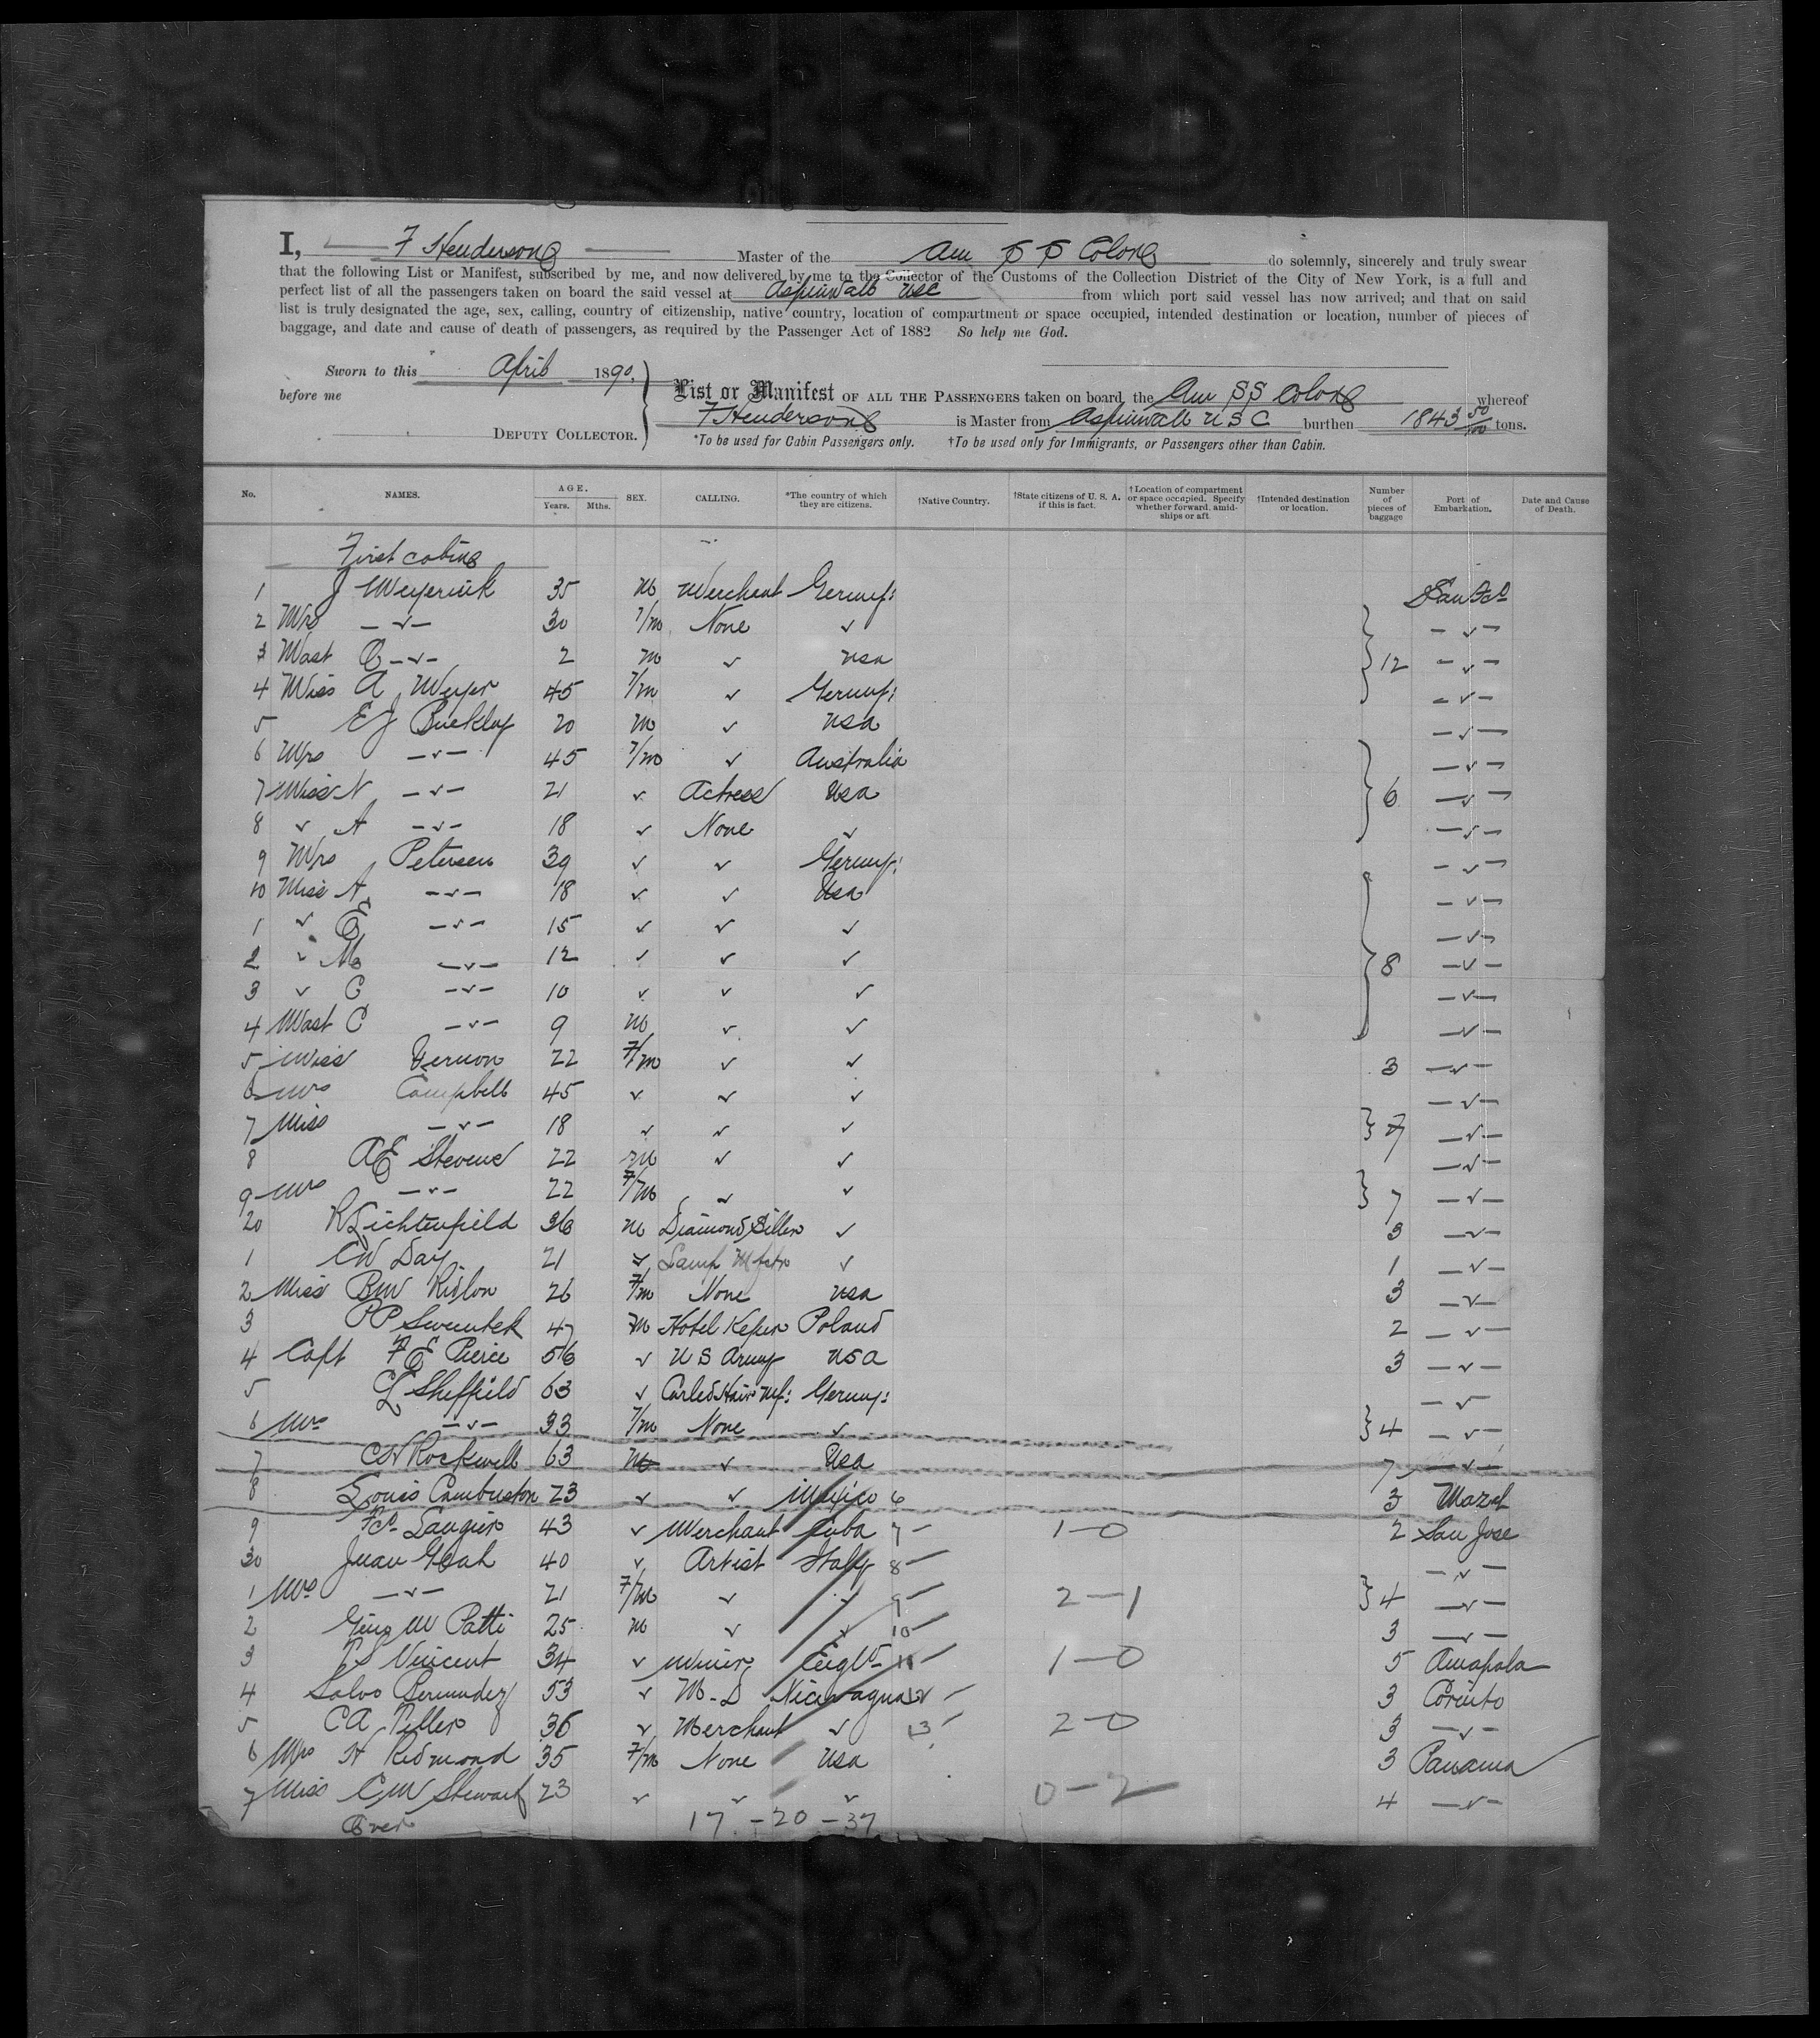 I, F Henderson Master of the Am SS Colon do solemnly, sincerely and truly swear
that the following List or Manifest, subscribed by me, and now delivered by me to the Collector of the Customs of the Collection District of the City of New York, is a full and
perfect list of all the passengers taken on board the said vessel at Aspinwall USC from which port said vessel has now arrived; and that on said
list is truly designated the age, sex, calling, country of citizenship, native country, location of compartment or space occupied, intended destination or location, number of pieces of
baggage, and date and cause of death of passengers, as required by the Passenger Act of 1882 So help me God.
Sworn to this April 1890.
before me
DEPUTY COLLECTOR.
List or Manifest OF ALL THE PASSENGERS taken on board the Am SS Colon whereof
F Henderson is Master from Aspinwall USC burthen 1843 50/100 tons.
*To be used for Cabin Passengers only. †To be used only for Immigrants, or Passengers other than Cabin.
No. NAMES. AGE. Years. Mths. SEX. CALLING. *The country of which they are citizens. †Native Country. †State citizens of U. S. A. if this is fact. †Location of compartment or space occupied. Specify whether forward, amidships or aft †Intended destination or location. Number of pieces of baggage Port of Embarkation. Date and Cause of Death.
First cabin
1 J 35 m Merchant Germy: San Fco
2 Mrs -v- 30 F/m None v -v-
3 Mast C -v- 2 m v usa 12 -v-
4 Miss A Meyer 45 F/m v Germy: -v-
5 EJ Buckley 20 m v usa -v-
6 Mrs -v- 45 F/m v Australia -v-
7 Miss N -v- 21 v Actress usa 6 -v-
8 v A -v- 18 v None v -v-
9 Mrs Petersen 39 v v Germy: -v-
10 Miss A -v- 18 v v usa -v-
1 v E -v- 15 v v v -v-
2 v M -v- 12 v v v 8 -v-
3 v C -v- 10 v v v -v-
4 Mast C -v- 9 m v v -v-
5 Miss Vernon 22 F/m v v 3 -v-
6 Mrs Campbell 45 v v v -v-
7 Miss -v- 18 v v v 7 -v-
8 AE Stevens 22 m v v -v-
9 Mrs -v- 22 F/m v v 7 -v-
20 R Lichtenfield 36 m Diamond Seller v 3 -v-
1 CW Day 21 v Lamp Mfctr v 1 -v-
2 Miss BW Ridlon 26 F/m None usa 3 -v-
3 PP 47 m Hotel Keper Poland 2 -v-
4 Capt FE Pierce 56 v US Army USA 3 -v-
5 CL Sheffield 63 v Curled Hair Mf: Germy: -v-
6 Mrs -v- 33 F/m None v 4 -v-
7 CH Rockwell 63 m v usa 7 -v-
8 Louis Cambuston 23 v v Mexico 6 3 Mazat
9 Fco Laugier 43 v Merchant Cuba 7 - 1-0 2 San Jose
30 Juan 40 v Artist Italy 8 - -v-
1 Mrs -v- 21 F/m v v 9 - 2-1 4 -v-
2 W Patti 25 m v v 10 - 3 -v-
3 Vincent 34 v Miner Engld 11 - 1-0 5 Amapala
4 Salvo Bermudez 53 v M-D Nicaragua 12 - 3 Corinto
5 CA Teller 36 v Merchant v 13 - 2-0 3 -v-
6 Mrs H Redmond 35 F/m None usa 3 Panama
7 Miss CM Stewart 23 v v v 0-2 4 -v-
Over 17 - 20 - 37